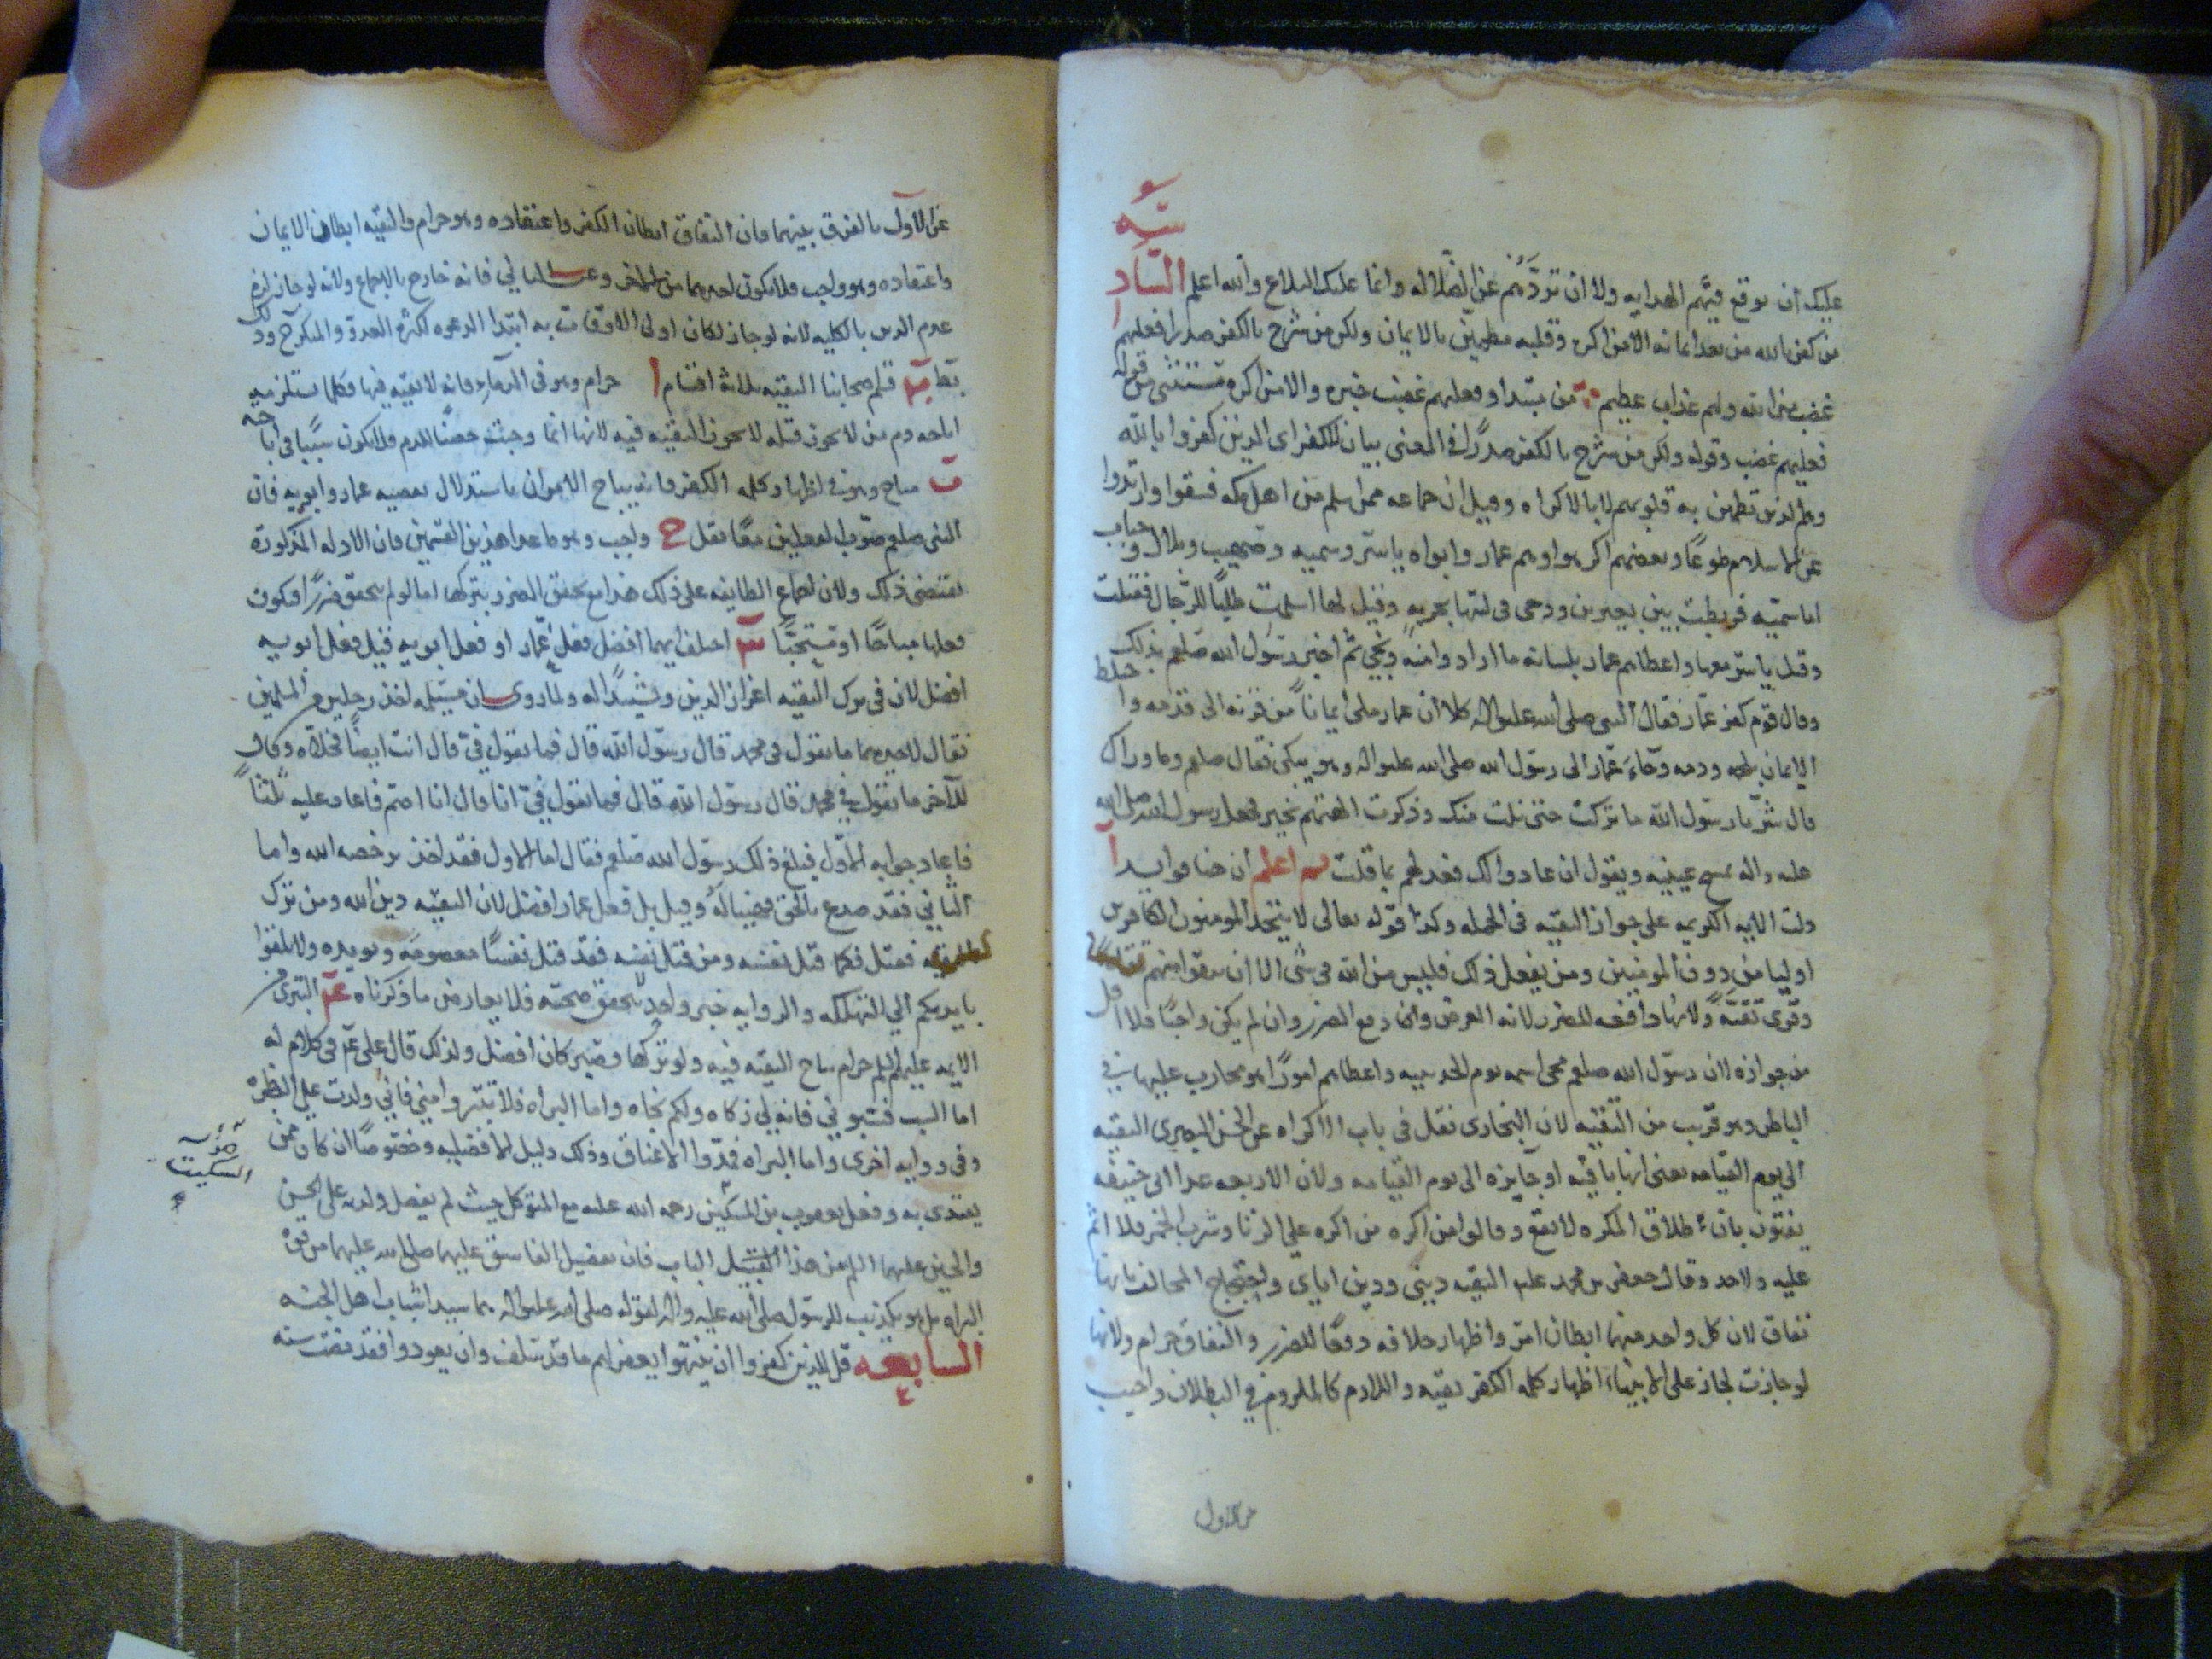 عليك أن توقع فيهم الهدايه ولا ان تردهم عن الضلاله وانما عليك البلاغ والله اعلم السادسة
من كفر بالله من بعد ايمانه الا من اكره وقلبه مطمئن بالايمان ولكن من شرح بالكفر صدرا فعليهم
غضب من الله ولهم عذاب عظيم من مبتدا وفعليهم غضب خبره والا من اكره مستثنى من قوله
فعليهم غضب وقوله ولكن من شرح بالكفر صدرا في المعنى بيان للكفر اى الذين كفروا بالله
وهم الذين تطمئن به قلوبهم لا بالاكراه وقيل ان جماعه ممن اسلم من اهل مكه فسقوا وارتدوا
عن الاسلام طوعا وبعضهم اكرهوا وهم عمار وابواه ياسر وسميه وصهيب وبلال وخباب
اما سميه فربطت بين بعيرين ووجى فى قبلها بحربه وقيل لها اسلمت طلبا للرجال فقتلت
وقتل ياسر معها واعطاهم عمار بلسانه ما ارادوا منه ونجى ثم اخبر رسول الله صلعم بذلك
وقال قوم كفر عمار فقال النبى صلى الله عليه واله كلا ان عمار ملئ ايمانا من قرنه الى قدمه واختلط
الايمان بلحمه ودمه وجاء عمار الى رسول الله صلى الله عليه واله وهو يبكى فقال صلعم وما وراك
قال شر يا رسول الله ما تركت حتى نلت منك وذكرت الهتهم بخير فجعل رسول الله صلى الله
عليه واله يمسح عينيه ويقول ان عادوا لك فعد لهم بما قلت ثم اعلم أن هنا فوايد آ
دلت الايه الكريمه على جواز التقيه فى الجمله وكذا قوله تعالى لا يتخذ المومنون الكافرين
اوليا من دون المومنين ومن يفعل ذلك فليس من الله فى شى الا ان تتقوا منهم تقاة
وقرى تقية ولانها دافعه للضرر لانه الفرض وانما دفع الضرر وان لم يكن واجبا فلا اقل
من جوازه لان رسول الله صلعم محى اسمه يوم الحديبيه واعطاهم امورا هو محارب عليها فى
الباطن وهو قريب من التقيه لان البخارى نقل فى باب الاكراه عن الحسن البصرى التقيه
الى يوم القيامه يعنى انها باقيه او جايزه الى يوم القيامه ولان الاربعه عدا ابى حنيفه
يفتون بان طلاق المكره لا يقع وقالوا من اكره على الزنا وشرب الخمر فلا اثم
عليه ولا حد وقال جعفر بن محمد عليه التقيه دينى ودين اباى واحتجاج المخالف بانها
نفاق لان كل واحد منهما ابطان امر واظهار خلافه دفعا للضرر والنفاق حرام ولانها
لو جازت لجاز على الانبياء اظهار كلمه الكفر تقيه واللازم كالملزوم فى البطلان واجيب
عن الاول
عن الاول بالفرق بينهما فان النفاق ابطان الكفر واعتقاده وهو حرام والتقيه ابطان الايمان
واعتقاده وهو واجب فلا يكون احدهما من الاخر وعن الثانى فانه خارج بالاجماع ولانه لو جاز لزم
عدم الدين بالكليه لانه لو جاز لكان اولى الاوقات به ابتدا الدعوه لكثره العدو والمنكر ح وذلك
باطل ب قسم اصحابنا التقيه ثلاثه اقسام ا حرام وهو فى الدماء فانه لا تقيه فيها فكلما يستلزم
اباحه دم من لا يجوز قتله لا يجوز التقيه فيه لانها انما وجبت حقنا للدم فلا يكون سببا فى اباحته
ب مباح وهو فى اظهار كلمه الكفر فانه يباح الامران باستدلال بقصه عمار وابويه فان
النبى صلعم صوب الفعلين معا نقل ج واجب وهو ما عدا هذين القسمين فان الادله المذكورة
تقتضى ذلك ولان اجماع الطايفه على ذلك هذا مع تحقق الضرر بتركها اما لو لم يتحقق ضررا فيكون
فعلها مباحا او مستحبا اختلف ايهما افضل فعل عمار او فعل ابويه قيل فعل ابويه
افضل لان فى ترك التقيه اعزاز الدين وتشييدا له ولما روى ان مسيلمه اخذ رجلين من المسلمين
فقال لاحدهما ما تقول فى محمد قال رسول الله قال فما تقول فى قال انت ايضا فخلاه وقال
للآخر ما تقول فى محمد قال رسول الله قال فما تقول فى انا قال انا اصم فاعاد عليه ثلثا
فاعاد جوابه الاول فبلغ ذلك رسول الله صلعم فقال اما الاول فقد اخذ برخصه الله واما
الثانى فقد صدع بالحق فهنيا له وقيل بل فعل عمار افضل لان التقيه دين الله ومن ترك
التقيه فقتل فكما قتل نفسه ومن قتل نفسه فقد قتل نفسا معصومه ويويده ولا تلقوا
بايديكم الى التهلكه والروايه خبر واحد لم يتحقق صحته فلا يعارض ما ذكرناه التبرى من
الايمه عليهم السلم حرام يباح التقيه فيه ولو تركها وصبر كان افضل ولذلك قال على ع فى كلام له
اما السب فسبونى فانه لى زكاه ولكم نجاه واما البراه فلا تتبروا منى فانى ولدت على الفطره
وفى روايه اخرى واما البراه فمدوا الاعناق وذلك دليل الافضليه وخصوصا ان كان ممن
يقتدى به وفعل يعقوب بن السكيت رحمه الله عليه مع المتوكل حيث لم يفضل ولديه على الحسن
والحسين عليهما السلم من هذا الباب فان تفضيل الفاسق عليهما صلى الله عليهما من قوة
البراه بل هو تكذيب للرسول صلى الله عليه واله لقوله صلى الله عليه واله هما سيدا شباب اهل الجنه
السابعه قل للذين كفروا ان ينتهوا يغفر لهم ما قد سلف وان يعودوا فقد مضت سنه
السكيت